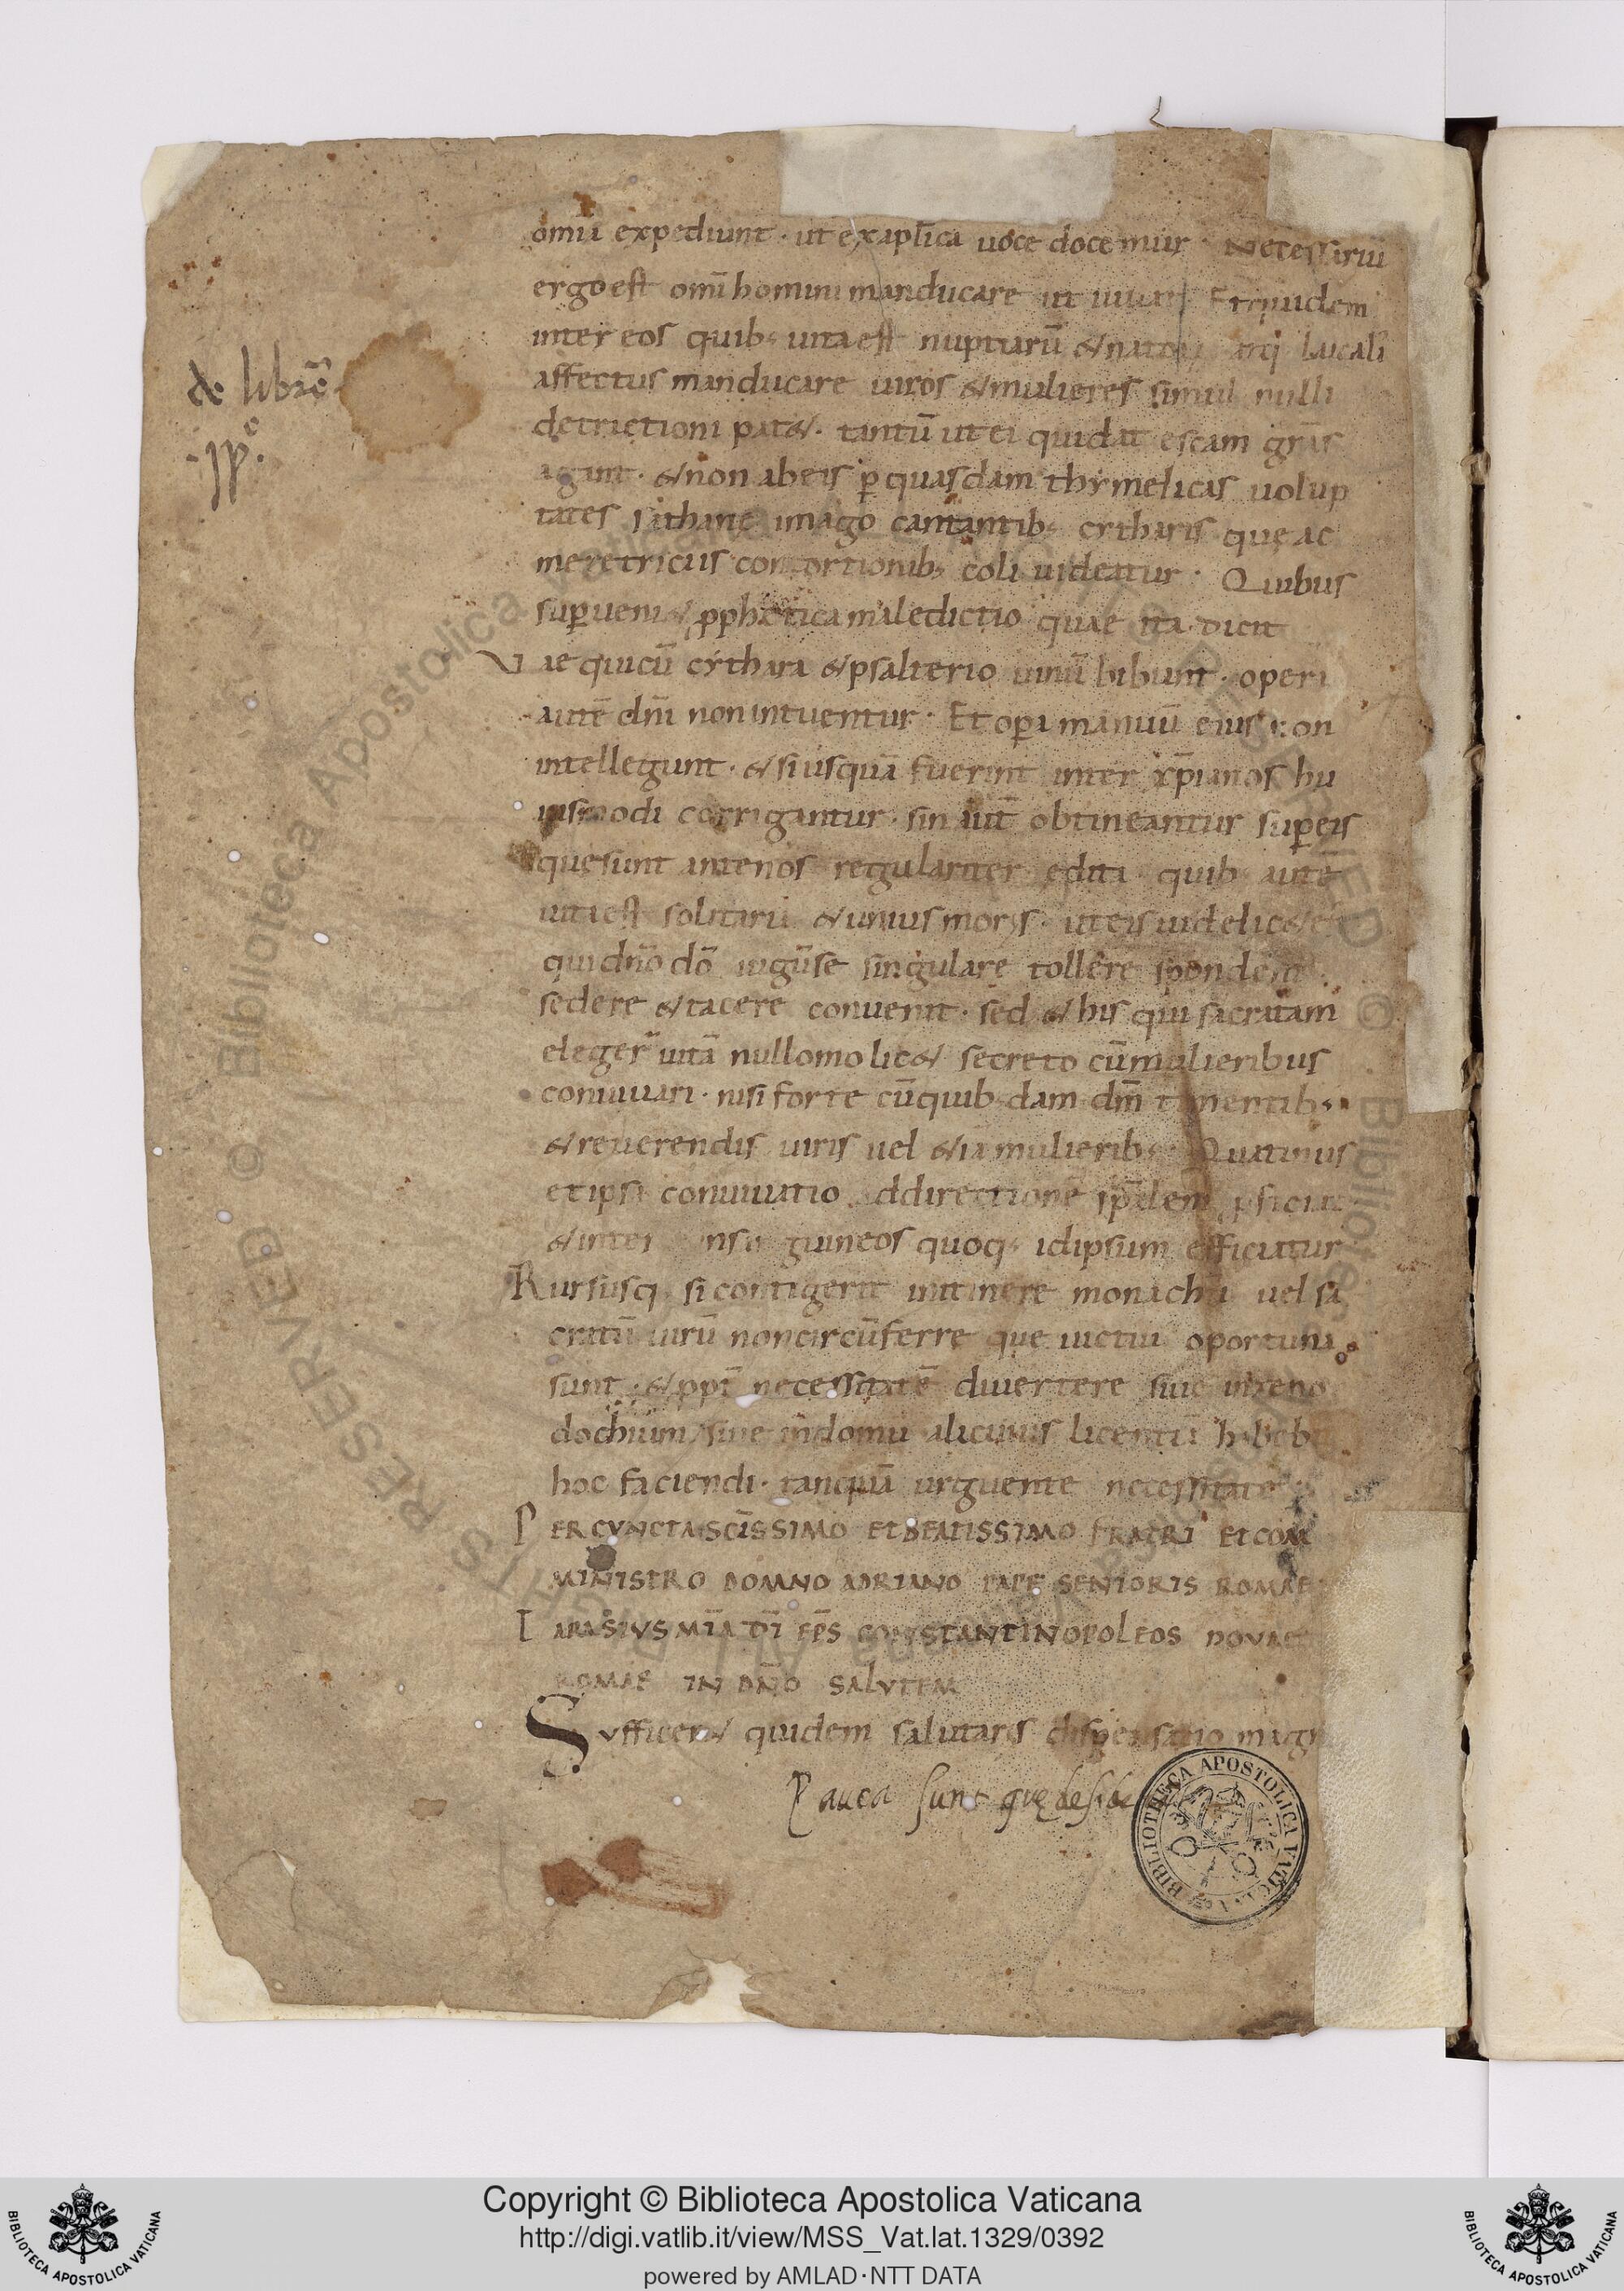 omiū expediunt · ut ex aplica uoce docemur · Necessariū
ergo est omī homini manducare ut uiuat Et quidem
inter eos quib; uita est nuptiarū & natorū laicali
affectus manducare uiros & mulieres simul nulli
detractioni pat&· tantū ut ei qui dat escam gr̄as
agant · & non ab eis p̄ quasdam thymelicas uolup
tates sathane imago cantantib; cytharis que ac
meretriciis contortionib; coli uideatur · Quibus
sup̄ueni& pphetica maledictio quae ita dicit
Vae qui cū cythara & psalterio uinū bibunt · opera
autē dn̄i non intuentur · Et op̄a manuū eius non
intellegunt · & si usquā fuerint inter xp̄ianos hu
iusmodi corrigantur · sin aut̄ obtineantur sup̄ eis
que sunt ante nos regulariter edita quib; autē
uita est solitaria & unius moris · ut eis uidelic&
qui dn̄o dō iugū se singulare tollere sponderit
sedere & tacere conuenit · sed & his qui sacratam
eleger̄ uitā nullomo lic& secreto cū mulieribus
conuiuari · nisi forte cū quib;dam dm̄ timentib;
& reuerendis uiris uel &iā mulierib; Quatinus
et ipsa conuiuatio ad directionē sp̄alem
& inter guineos quoq; id ipsum efficiatur
Rursusq; si contigerit in itinere monachū uel sa
cratū uirū non circūferre que uictui oportuna
sunt · & ppt̄ necessitatē diuertere siue in xeno
dochium siue in domū alicuius licentiā habebit
hoc faciendi · tanquā urguente necessitate
PER CVNCTA SCĪSSIMO ET BEATISSIMO FRATRI ET COM
MINISTRO DOMNO ADRIANO PAPE SENIORIS ROMAE
TARASIVS MĪA DĪ EPS̄ CONSTANTINOPOLEOS NOVAE
ROMAE IN DÑO SALVTEM
Sufficer& quidem salutaris dispensatio magn
Pauca sunt que
de libro
BIBLIOTHECA APOSTOLICA VATICANA
Biblioteca Apostolica Vaticana
ALL RIGHTS RESERVED ©
Copyright © Biblioteca Apostolica Vaticana
http://digi.vatlib.it/view/MSS_Vat.lat.1329/0392
powered by AMLAD·NTT DATA
BIBLIOTECA APOSTOLICA VATICANA
BIBLIOTECA APOSTOLICA VATICANA